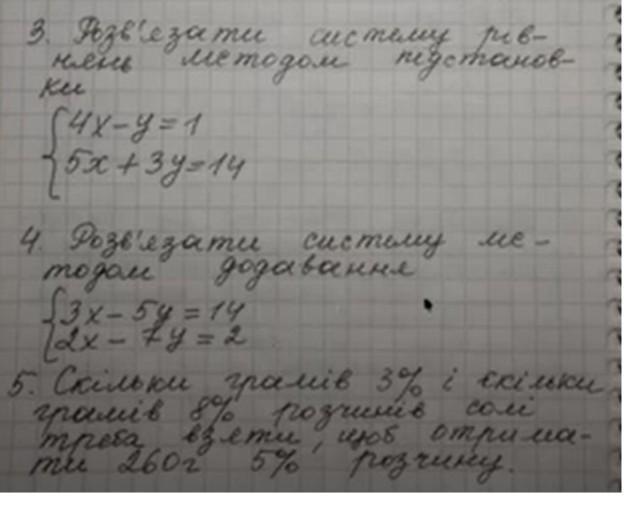 3. Розв'язати систему рів-
нянь методом підстанов-
ки
4x - y = 1
5x + 3y = 14
4. Розв'язати систему ме-
тодом додавання
3x - 5y = 14
2x - 7y = 2
5. Скільки грамів 3% і скільки
грамів 8% розчинів солі
треба взяти, щоб отрима-
ти 260г 5% розчину.